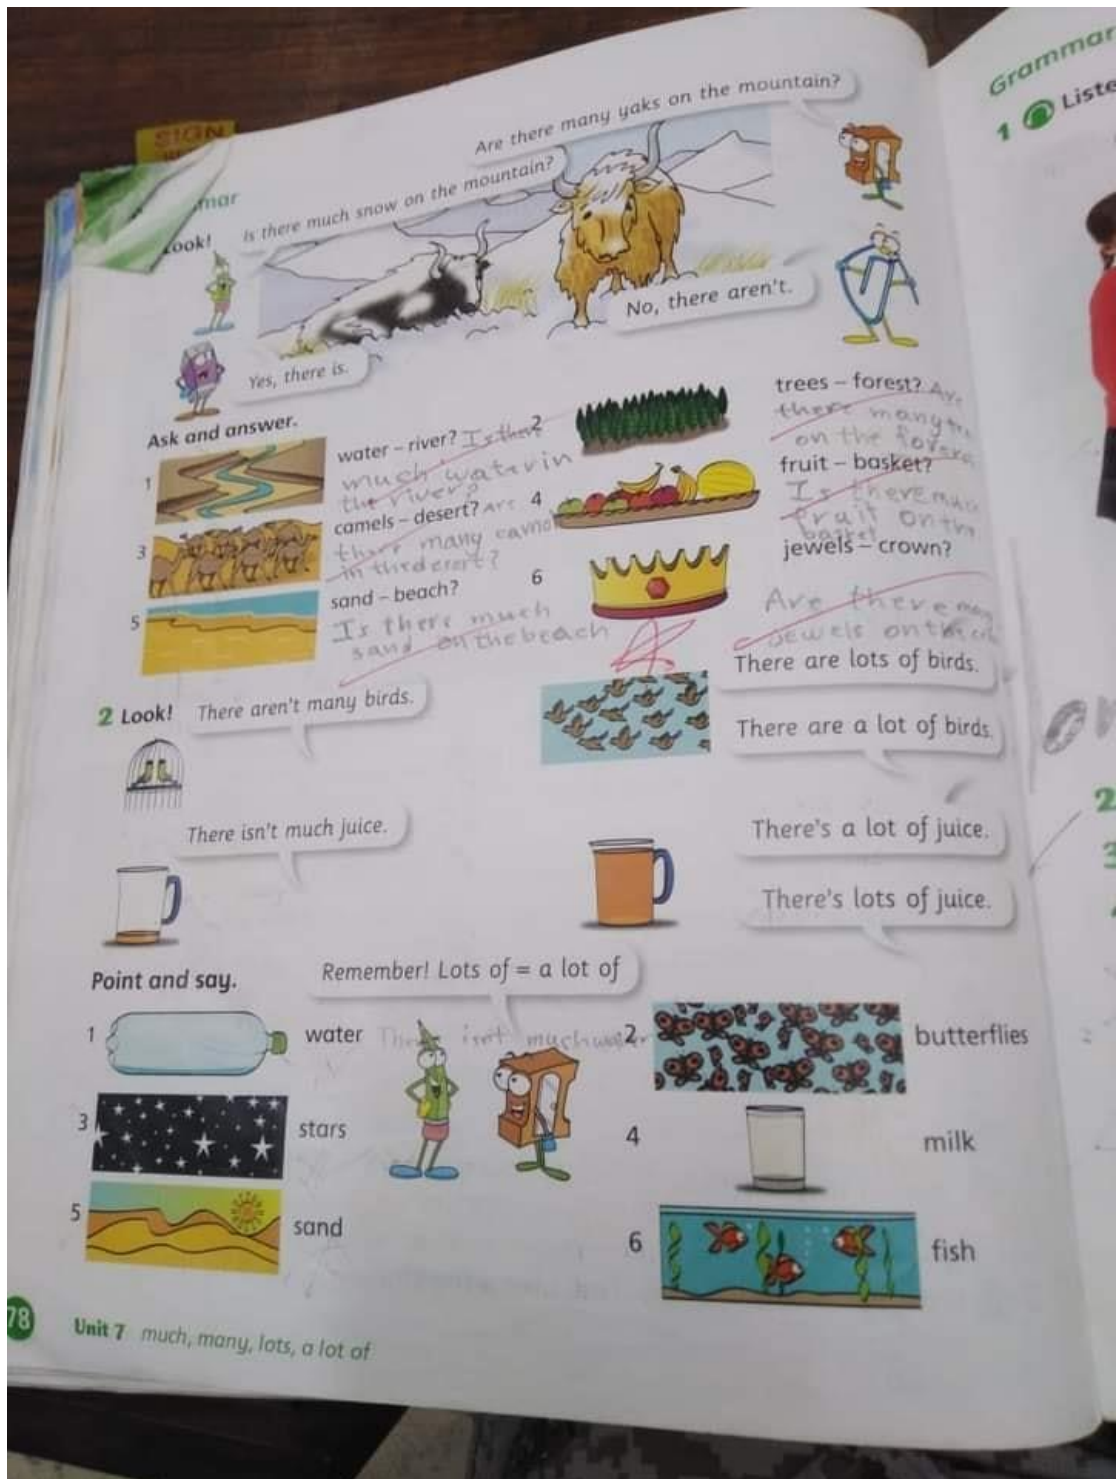 SIGN
Grammar
1 Liste
mar
Look!
Is there much snow on the mountain?
Are there many yaks on the mountain?
No, there aren't.
Yes, there is.
Ask and answer.
1 water – river? Is there
much water in
the river?
2 trees – forest? Are
there many
on the
3 camels – desert? Are
there many
in the desert?
4 fruit – basket?
Is there
fruit on the
5 sand – beach?
Is there much
sand on the beach
6 jewels – crown?
Are there many
jewels on the
2 Look!
There aren't many birds.
There are lots of birds.
There are a lot of birds.
There isn't much juice.
There's a lot of juice.
There's lots of juice.
Point and say.
Remember! Lots of = a lot of
1 water There isn't much water
2 butterflies
3 stars
4 milk
5 sand
6 fish
78 Unit 7 much, many, lots, a lot of
2
3